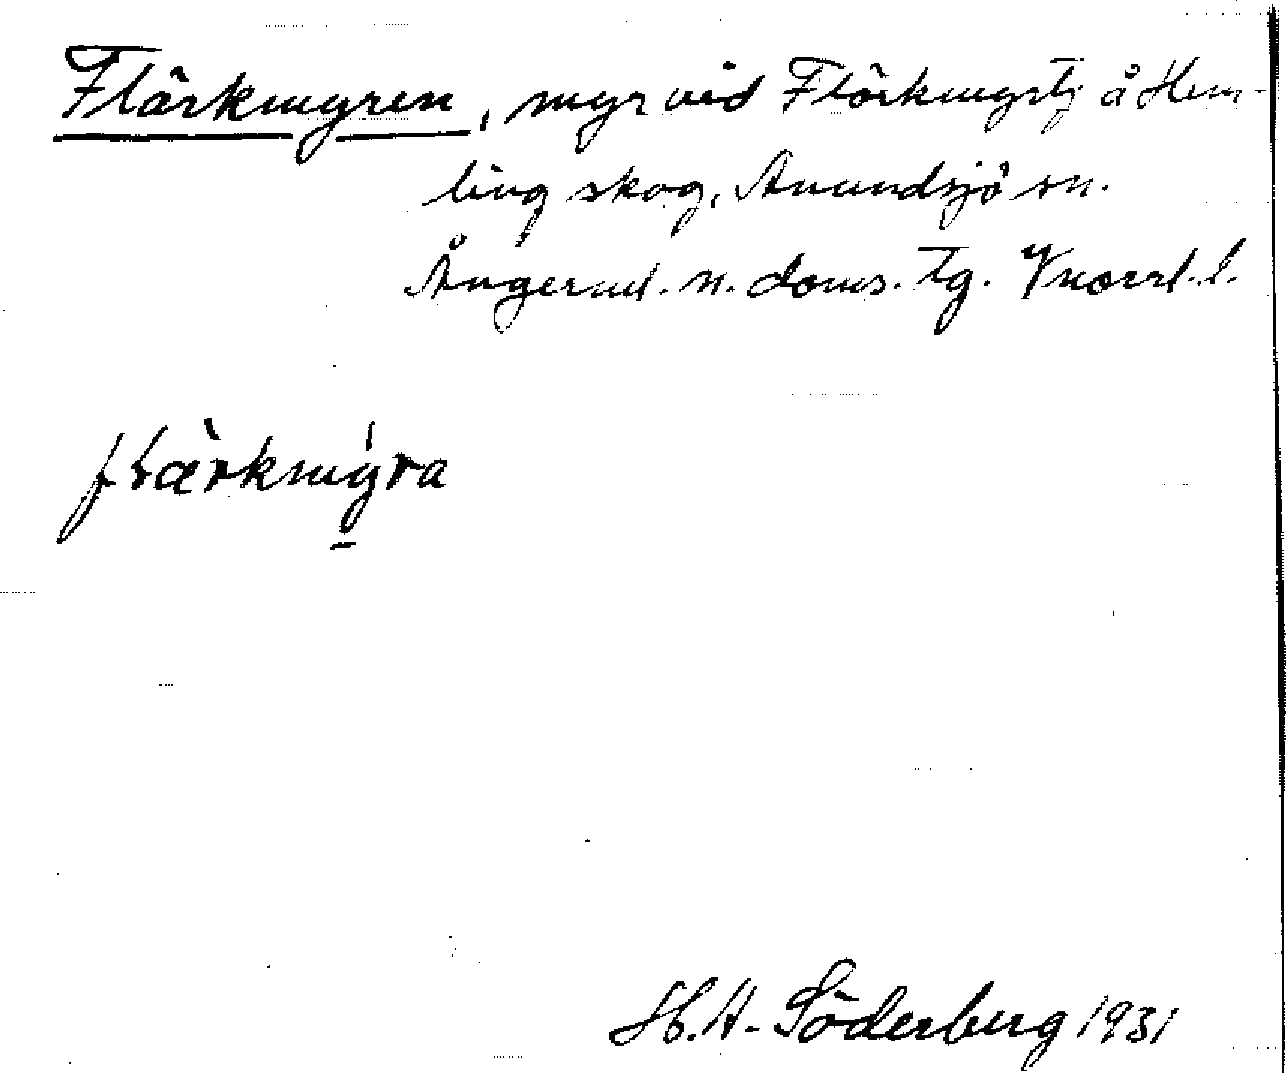 Flärkmyren, myr vid Flärkmyrtj å Hem-
ling skog, Anundsjö sn.
Ångerml. n. doms. tg. Vnorrl. l.
flærkmyra
H.A. Söderberg 1931